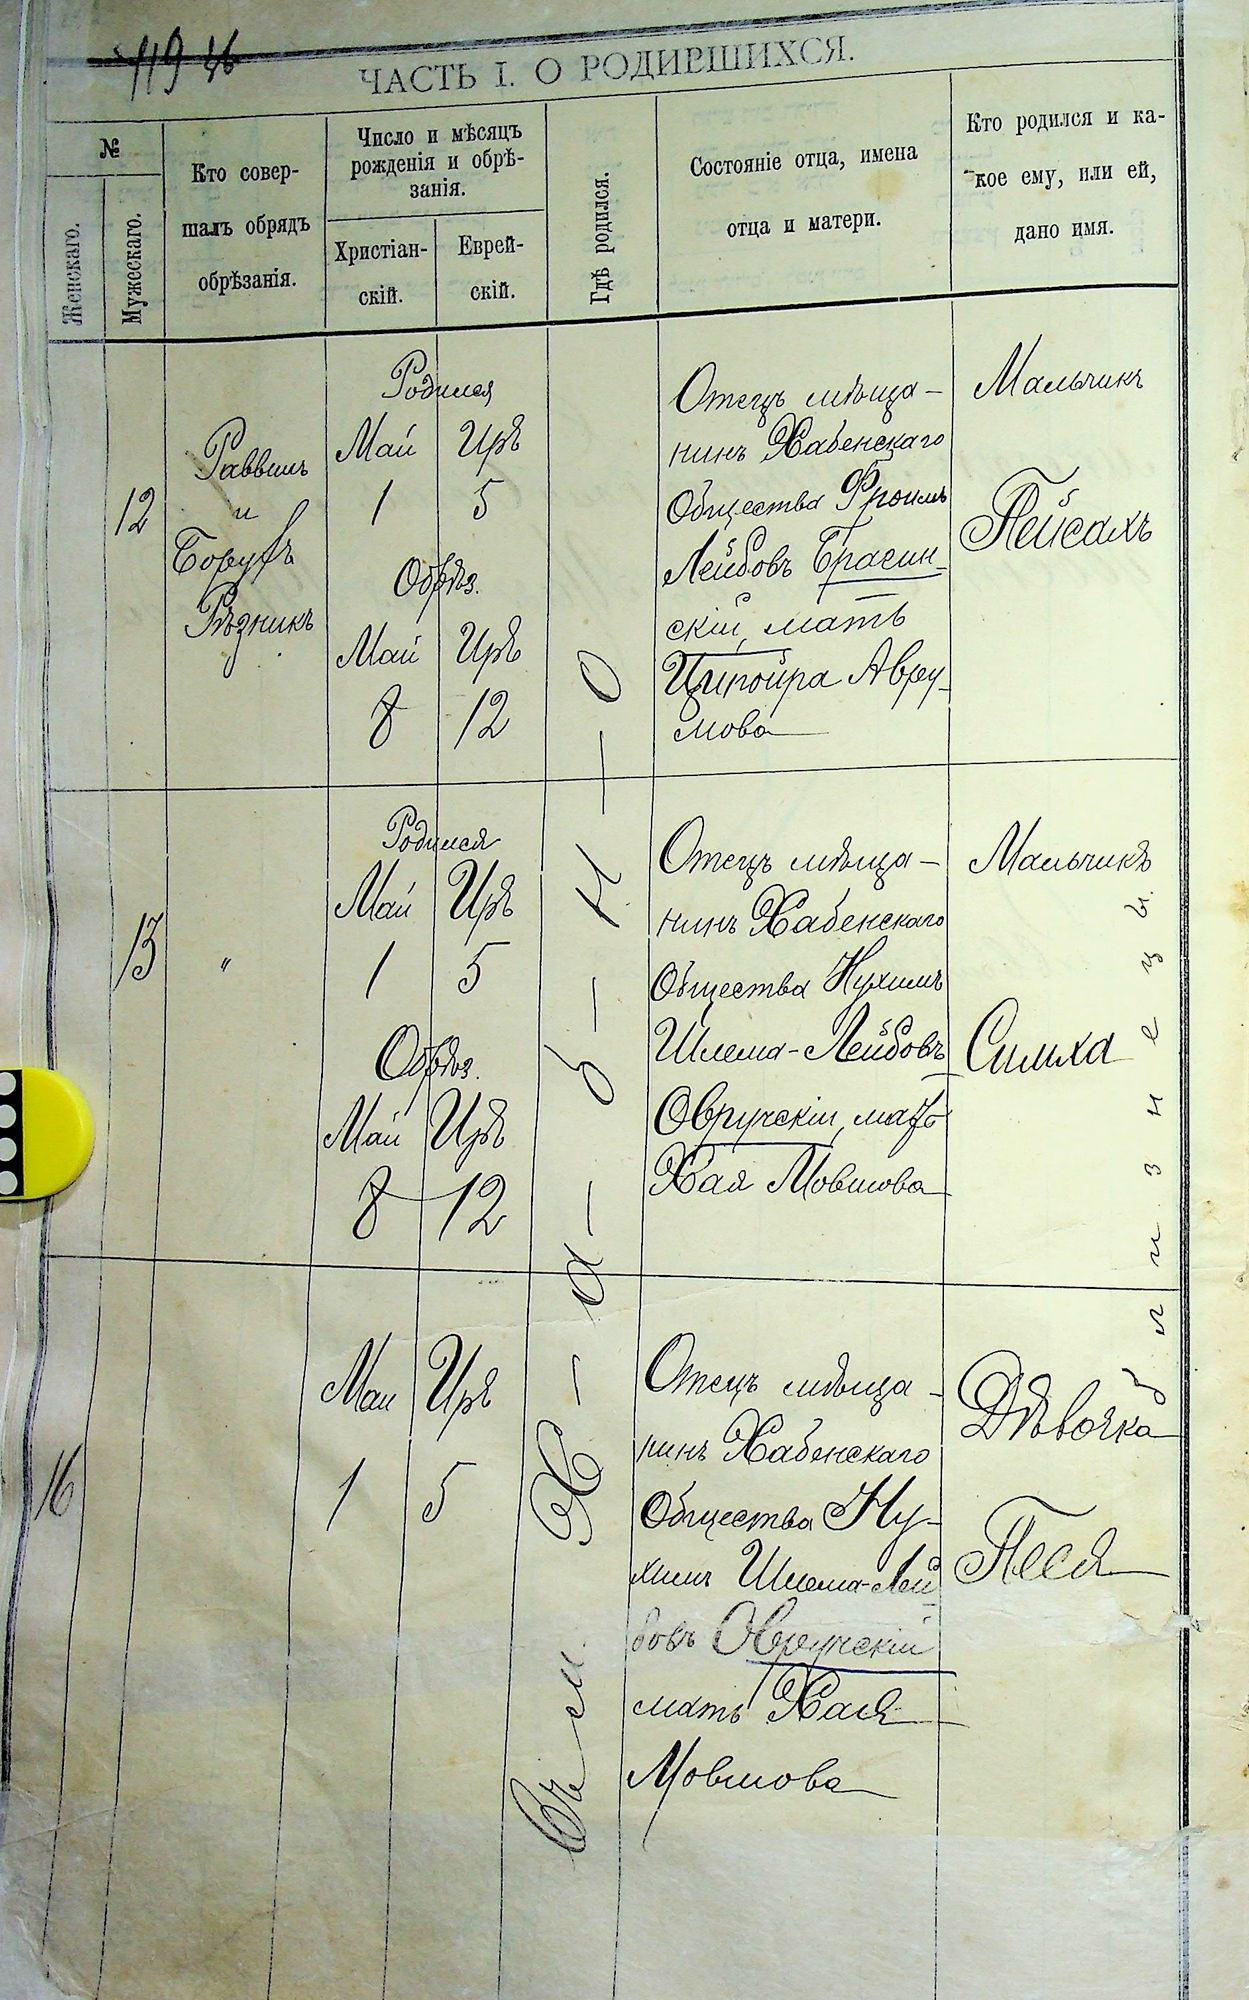 119 46
ЧАСТЬ I. О РОДИВШИХСЯ.
№
Женскаго.
Мужескаго.
Кто совер-
шалъ обрядъ
обрѣзанія.
Число и мѣсяцъ
рожденія и обрѣ-
занія.
Христіан-
скій.
Еврей-
скій.
Гдѣ родился.
Состояніе отца, имена
отца и матери.
Кто родился и ка-
кое ему, или ей,
дано имя.
12
Раввинъ
и
Борухъ
Рѣзникъ
Родился
Май Иръ
1 5
Обрѣз.
Май Иръ
8 12
Отецъ мѣща-
нинъ Хабенскаго
Общества Фроимъ
Лейбовъ Брагин-
скій, мать
Ципойра Авру-
мова
Мальчикъ
Пейсахъ
13
"
Родился
Май Иръ
1 5
Обрѣз.
Май Иръ
8 12
Отецъ мѣща-
нинъ Хабенскаго
Общества Нухимъ
Шлема-Лейбовъ
Овручскій, мать
Хая Мовшова
Мальчикъ
Симха
16
Май Иръ
1 5
Отецъ мѣща-
нинъ Хабенскаго
Общества Ну-
химъ Шлема-Лей
бовъ Овручскій
мать Хая
Мовшова
Дѣвочка
Песя
Въ м. Х-а-б-н-о
близнецы